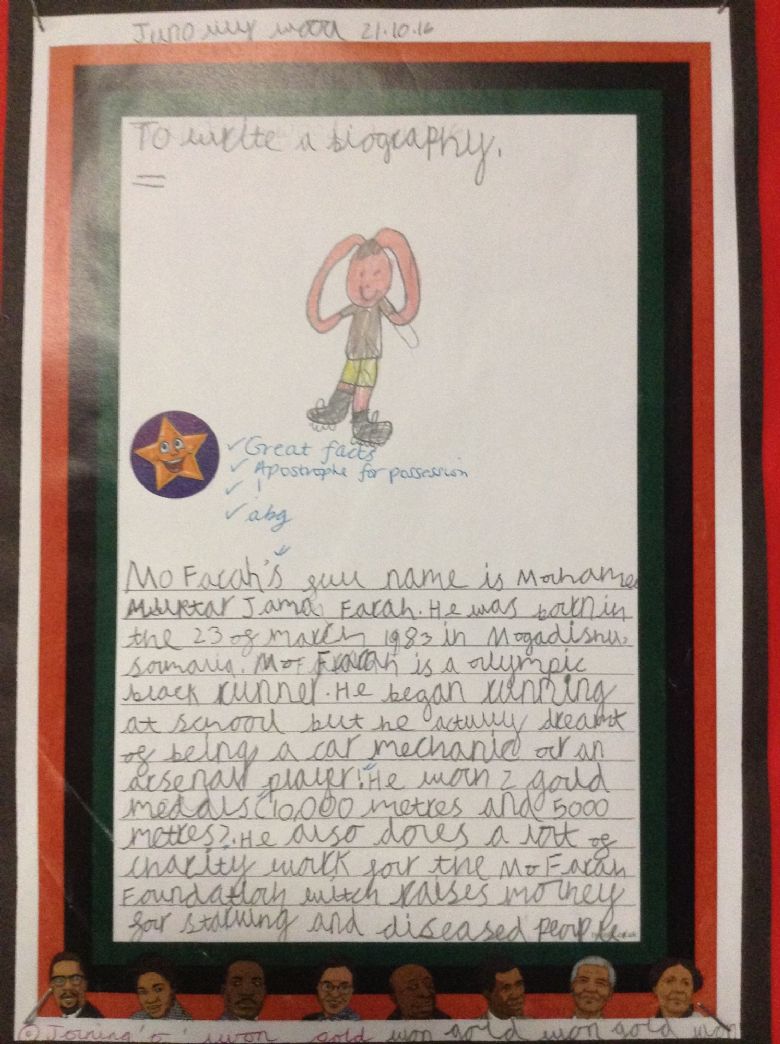 21.10.16
To write a biography.
✓ Great facts
✓ Apostrophe for possession
✓ !
✓ abg
Mo Farah's full name is Mohamed
Muktar Jama Farah. He was born in
the 23 of march 1983 in Mogadishu,
Somaria. Mo Farah is a olympic
black runner. He began running
at school but he actuly dreamt
of being a car mechanic or an
arsenal player! He won 2 gould
medals (10,000 metres and 5000
metres). He also does a lot of
charity work for the Mo Farah
Foundation witch raises money
for starving and diseased people.
Joining 'o' won gold won gold won gold won